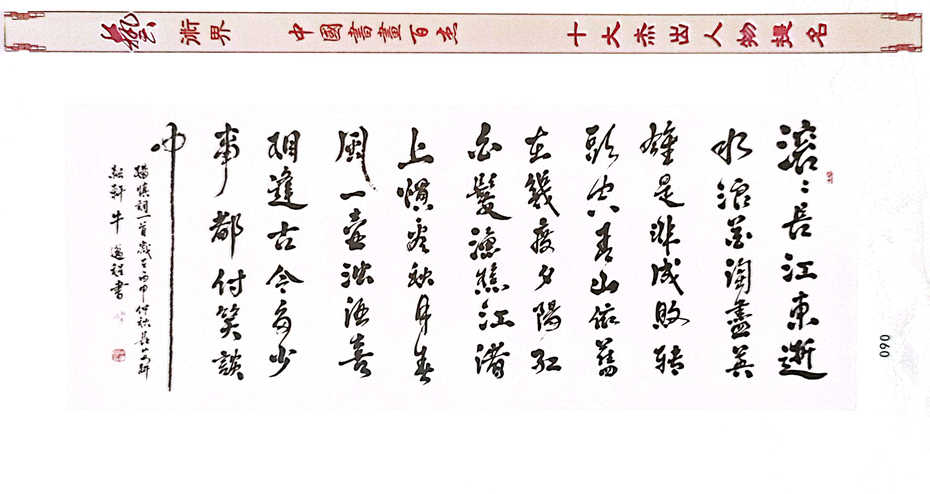 藝術界
中國書畫百杰
十大杰出人物提名
滚〻長江東逝
水浪花淘盡英
雄是非成敗转
頭空青山依舊
在幾度夕陽红
白髮漁樵江渚
上惯看秋月春
風一壶浊酒喜
相逢古今多少
事都付笑談
中
楊慎詞一首歲在丙申仲秋
軒牛書
090